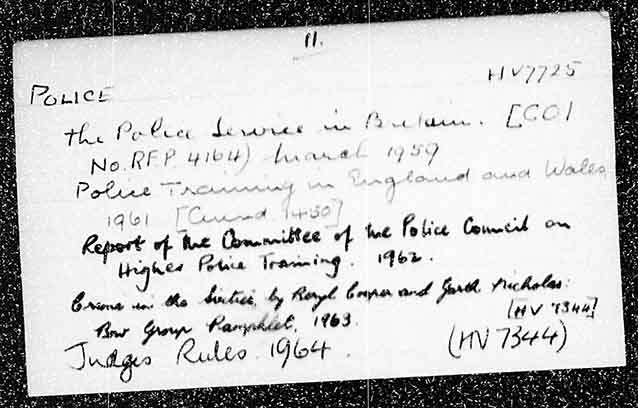 11.
HV7725
POLICE
The Police Service in Britain. [COI
No. RFP 4164) March 1959
Police Training in England and Wales
1961 [Cmnd 1450]
Report of the Committee of the Police Council on
Higher Police Training. 1962.
Crime in the Sixties, by Beryl Cooper and Garth Nicholas:
Bow Group Pamphlet, 1963. [HV 7344]
Judges Rules. 1964. (HV 7344)